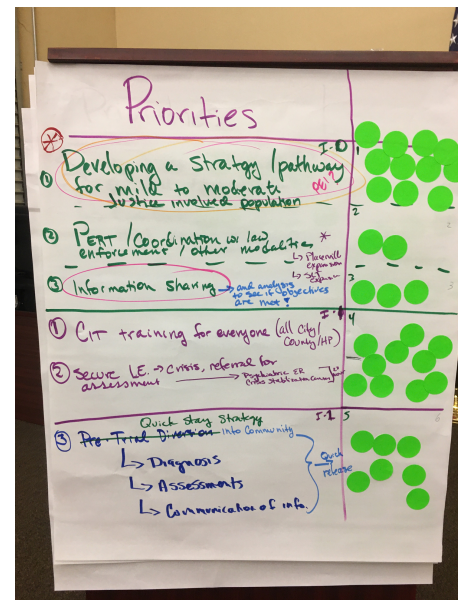 Priorities
I-0
1
① Developing a Strategy/pathway
for mild to moderate
Justice involved population
2
② PERT/Coordination w law *
enforcement/other modalities
↳ Placement
expansion
3
③ Information Sharing → and analysis
to see if objectives
are met?
4
① CIT training for everyone (all City/
County/HP)
② Secure I.E. → Crisis, referral for
assessment → Psychiatric ER
Crisis Stabilization
Quick Stay Strategy I-2 5
③ Pre-Trial Diversion into Community
↳ Diagnosis
Quick
release
↳ Assessments
↳ Communication of info.